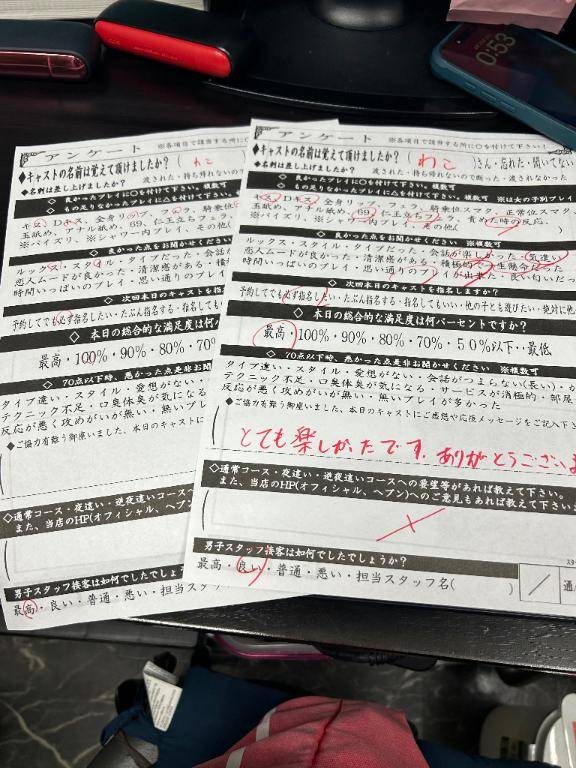 0:53
アンケート
※各項目で該当する所に○を付けて下
◆キャストの名前は覚えて頂けましたか?(わこ
◆名刺は差し上げましたか?
渡された・持ち帰れないので
◇良かったプレイに○を付けて下さい。複数可
◇もの足りなかったプレイに△を付けて下さい。
キス、Dキス、全身リップ、フェラ、騎乗位
玉舐め、アナル舐め、69、仁王立ちフェラ、
※パイズリ、※シャワー内プレイ、その他(
◇良かった点をお聞かせください
ルックス・スタイル・タイプだった・会話
恋人ムードが良かった・清潔感がある・積
時間いっぱいのプレイ・思い通りのプレイ
◇次回本日のキャストを指
予約してでも必ず指名したい・たぶん指名する・指名しても
◇本日の総合的な満足度は何パ
最高・100%・90%・80%・70%
◇70点以下時、悪かった点是非お聞
タイプ違い・スタイル・愛想がない・
テクニック不足・口臭体臭が気になる
反応が悪く攻めがいが無い・無いプレイ
◆ご協力有難う御座いました、本日のキャストに
◇通常コース・夜這い・逆夜這いコースへ
また、当店のHP(オフィシャル、ヘブン
男子スタッフ接客は如何でしたでしょ
最高・良い・普通・悪い・担当スタッフ
アンケート
※各項目で該当する所に○を付けて下さい。
◆キャストの名前は覚えて頂けましたか?(わこ)さん・忘れた・聞いてない
◆名刺は差し上げましたか?
渡された・持ち帰れないので断った・渡されなかった
◇良かったプレイに○を付けて下さい。複数可
◇もの足りなかったプレイに△を付けて下さい。複数可 ※は女の子別プレイ
キス、Dキス、全身リップ、フェラ、騎乗位スマタ、正常位スマタ
玉舐め、アナル舐め、69、仁王立ちフェラ、攻めた時の反応、
※パイズリ、※シャワー内プレイ、その他( )
◇良かった点をお聞かせください ※複数可
ルックス・スタイル・タイプだった・会話が楽しかった・気遣い
恋人ムードが良かった・清潔感がある・積極的・一生懸命だった
時間いっぱいのプレイ・思い通りのプレイが出来た・良い匂いだっ
◇次回本日のキャストを指名しますか?
予約してでも必ず指名したい・たぶん指名する・指名してもいい・他の子とも遊びたい・絶対に指
◇本日の総合的な満足度は何パーセントですか?
最高・100%・90%・80%・70%・50%以下・最低
◇70点以下時、悪かった点是非お聞かせください ※複数可
タイプ違い・スタイル・愛想がない・会話がつまらない(長い)・か
テクニック不足・口臭体臭が気になる・サービスが消極的・部屋
反応が悪く攻めがいが無い・無いプレイが多かった
◆ご協力有難う御座いました、本日のキャストにご感想や応援メッセージをご記入下
とても楽しかったです。ありがとうございま
◇通常コース・夜這い・逆夜這いコースへの要望等があれば教えて下さい。
また、当店のHP(オフィシャル、ヘブン)へのご意見もあれば教えて下さい。
男子スタッフ接客は如何でしたでしょうか?
最高・良い・普通・悪い・担当スタッフ名( )